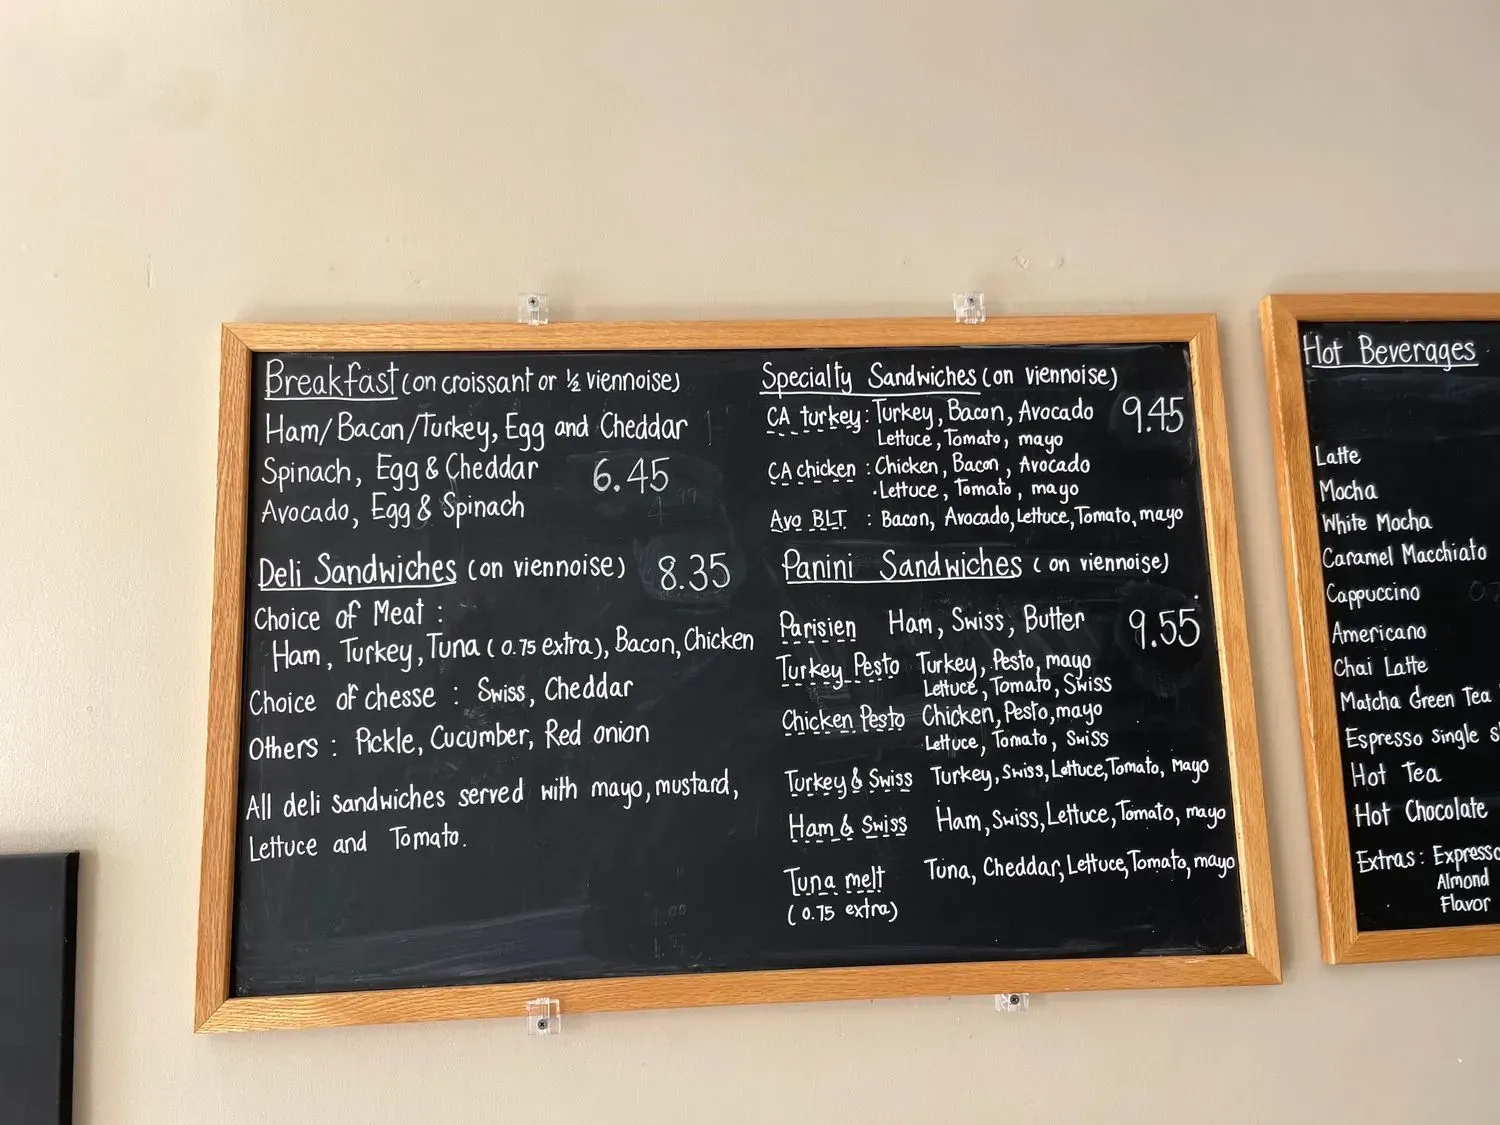 Breakfast (on croissant or ½ viennoise)
Ham/Bacon/Turkey, Egg and Cheddar
Spinach, Egg & Cheddar 6.45
Avocado, Egg & Spinach
Deli Sandwiches (on viennoise) 8.35
Choice of Meat :
Ham, Turkey, Tuna (0.75 extra), Bacon, Chicken
Choice of chesse : Swiss, Cheddar
Others : Pickle, Cucumber, Red onion
All deli sandwiches served with mayo, mustard,
Lettuce and Tomato.
Specialty Sandwiches (on viennoise)
CA turkey : Turkey, Bacon, Avocado 9.45
Lettuce, Tomato, mayo
CA chicken : Chicken, Bacon, Avocado
Lettuce, Tomato, mayo
Avo BLT : Bacon, Avocado, Lettuce, Tomato, mayo
Panini Sandwiches (on viennoise)
Parisien Ham, Swiss, Butter 9.55
Turkey Pesto Turkey, Pesto, mayo
Lettuce, Tomato, Swiss
Chicken Pesto Chicken, Pesto, mayo
Lettuce, Tomato, Swiss
Turkey & Swiss Turkey, Swiss, Lettuce, Tomato, Mayo
Ham & Swiss Ham, Swiss, Lettuce, Tomato, mayo
Tuna melt Tuna, Cheddar, Lettuce, Tomato, mayo
(0.75 extra)
Hot Beverages
Latte
Mocha
White Mocha
Caramel Macchiato
Cappuccino
Americano
Chai Latte
Matcha Green Tea
Espresso single
Hot Tea
Hot Chocolate
Extras : Expresso
Almond
Flavor